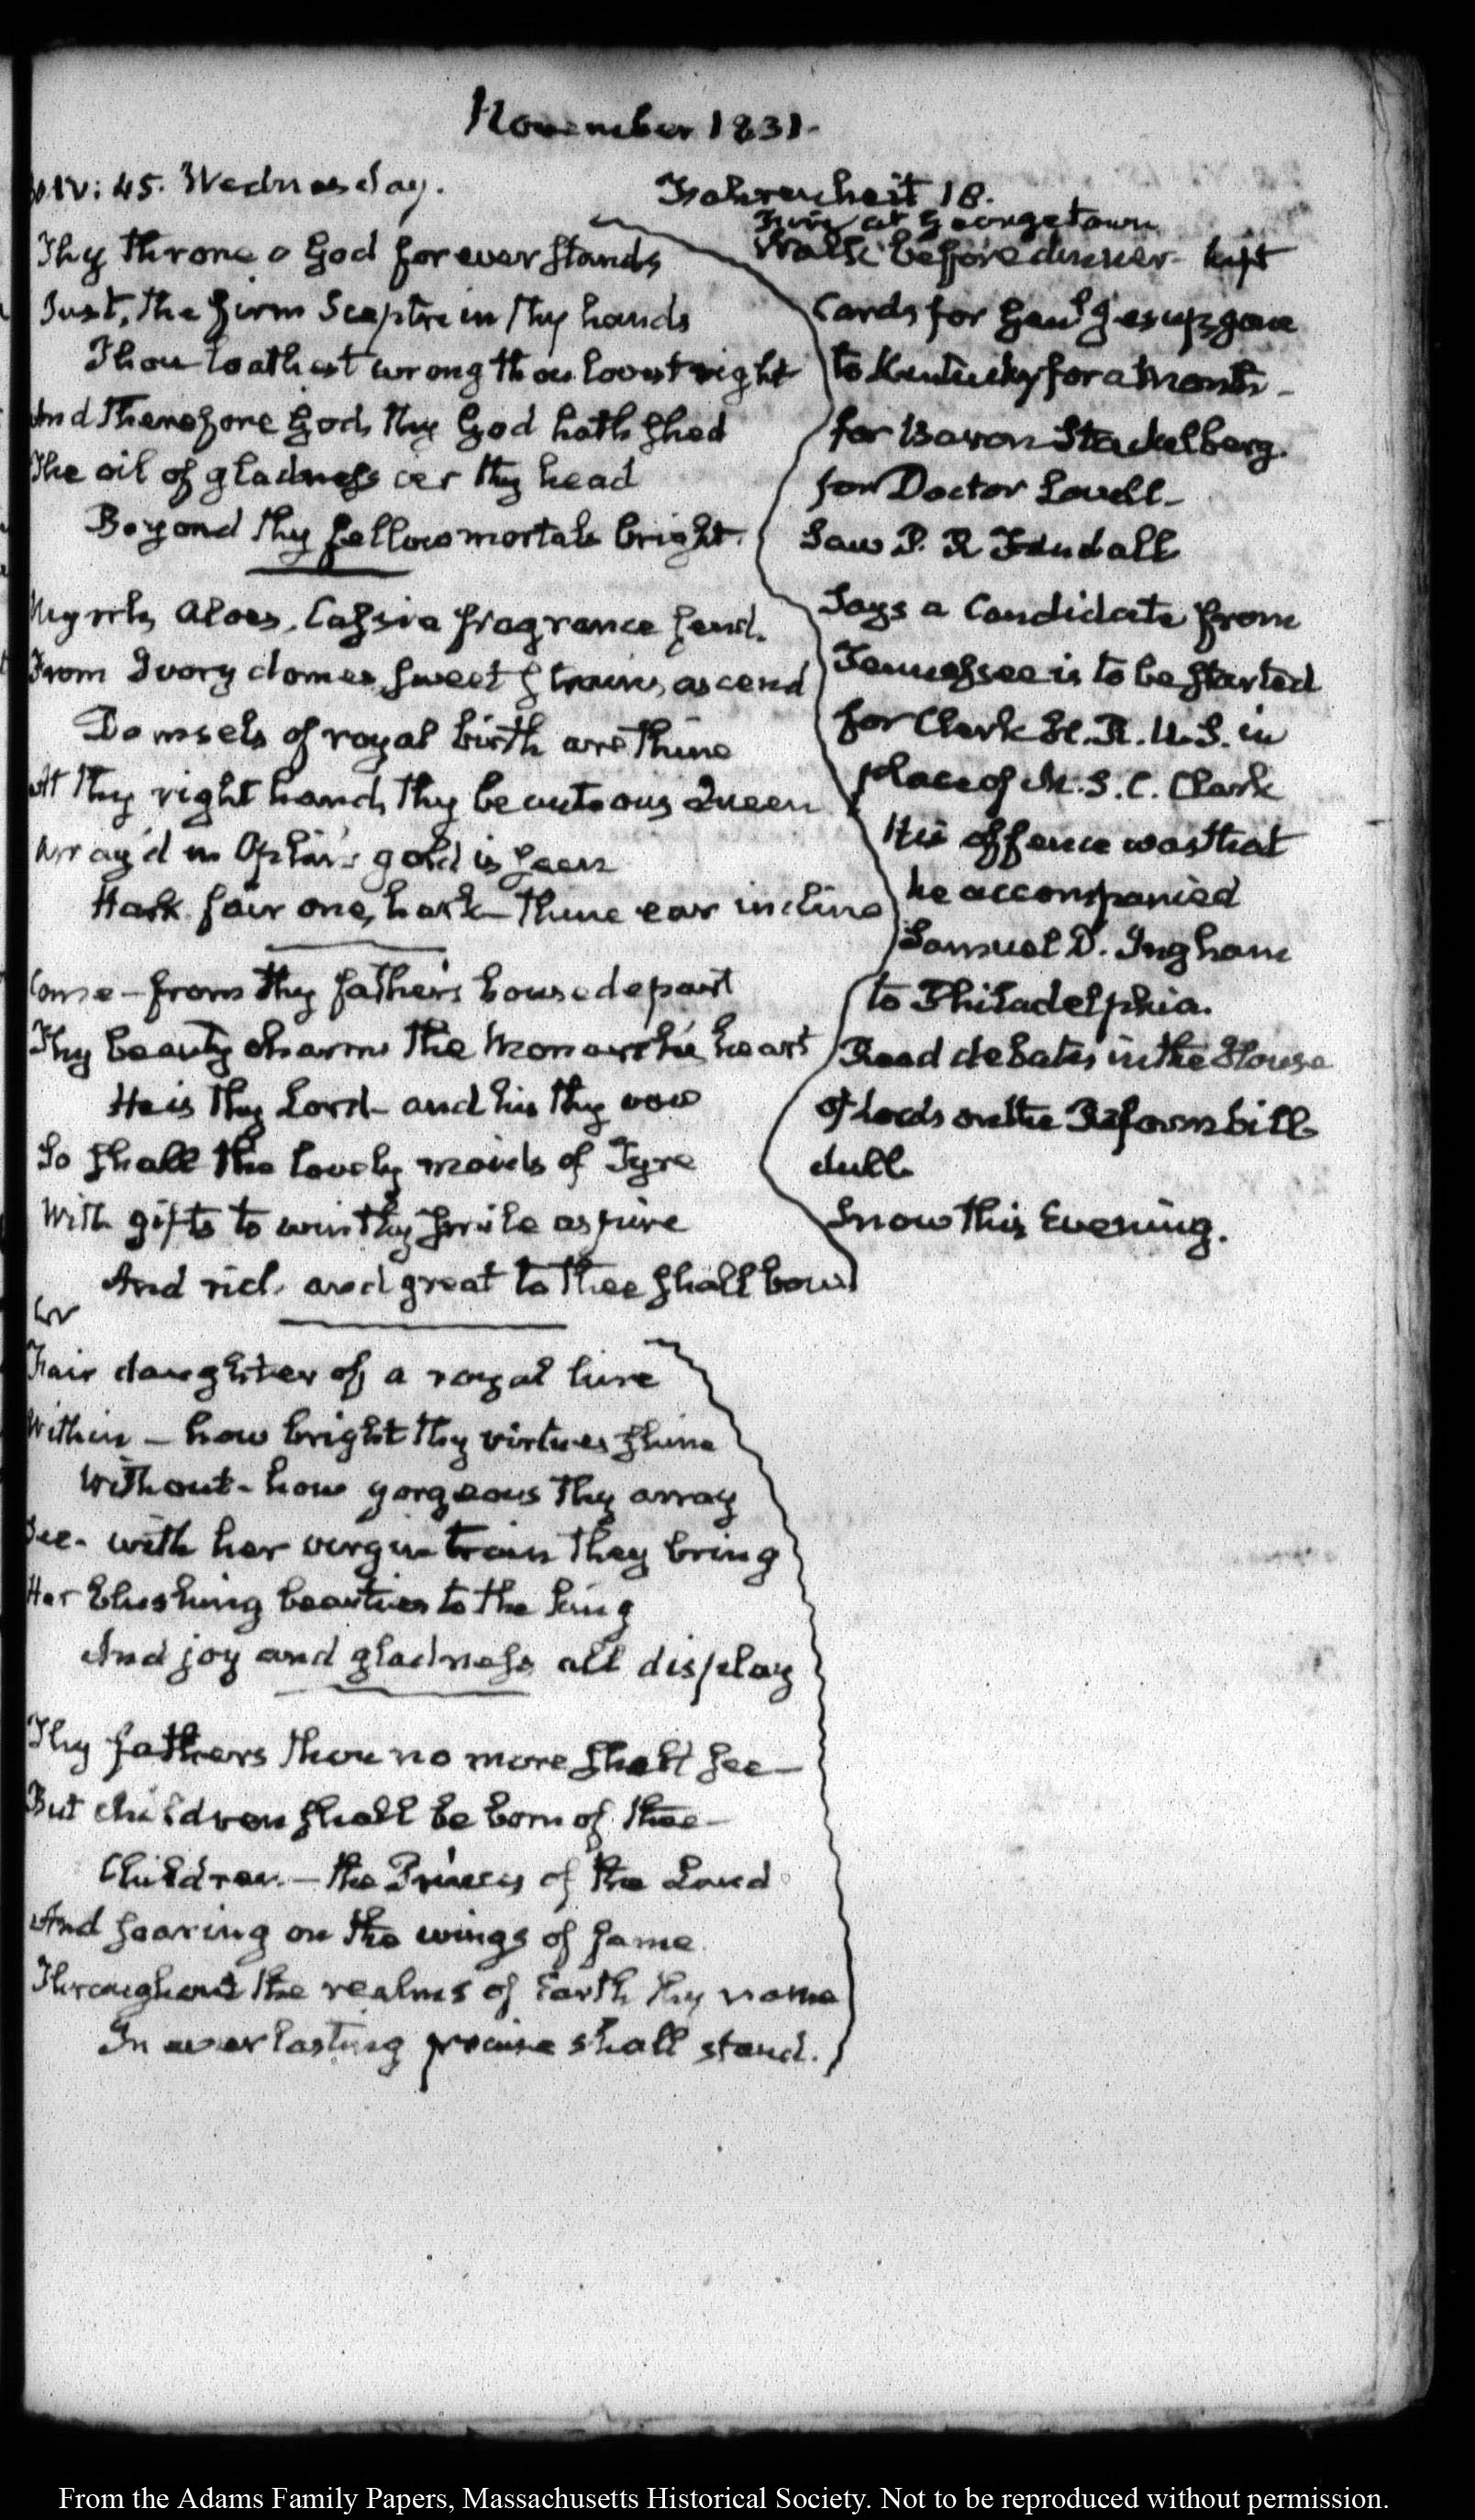 November 1831.
XIV: 45. Wednesday.
Thy throne o God forever stands
Just, the firm Sceptre in thy hands
Thou loathest wrong thou lovest right
And therefore God, thy God hath shed
The oil of gladness oer thy head
Beyond thy fellow mortals bright.
Myrrh, Aloes, Cassia fragrance send.
From Ivory domes sweet strains ascend
Damsels of royal birth are thine
At thy right hand, thy beauteous Queen
Array'd in Ophir's gold is seen
Hark fair one, hark—thine ear incline
Come—from thy father's house depart
Thy beauty charms the Monarch's heart
He is thy Lord—and his thy vow
So shall the lovely maids of Tyre
With gifts to win thy smile aspire
And rich and great to thee shall bow
Fair daughter of a royal line
Within—how bright thy virtues shine
Without—how gorgeous thy array
See—with her virgin train they bring
Her blushing beauties to the king
And joy and gladness all display
Thy fathers thou no more shalt see—
But children shall be born of thee—
Children—the Princes of the Land
And soaring on the wings of fame
Throughout the realms of Earth thy name
In everlasting praise shall stand.
Fahrenheit 18.
at Georgetown
Walk before dinner— left
Cards for Genl. Jesup, gone
to Kentucky for a Month—
for Baron Stackelberg.
for Doctor Lovell—
Saw P. R Fendall
Says a Candidate from
Tennessee is to be started
for Clerk H. R. U. S. in
place of M. S. C. Clark
His offence was that
he accompanied
Samuel D. Ingham
to Philadelphia.
Read debates in the House
of Lords on the Reform bill
dull
Snow this Evening.
From the Adams Family Papers, Massachusetts Historical Society. Not to be reproduced without permission.